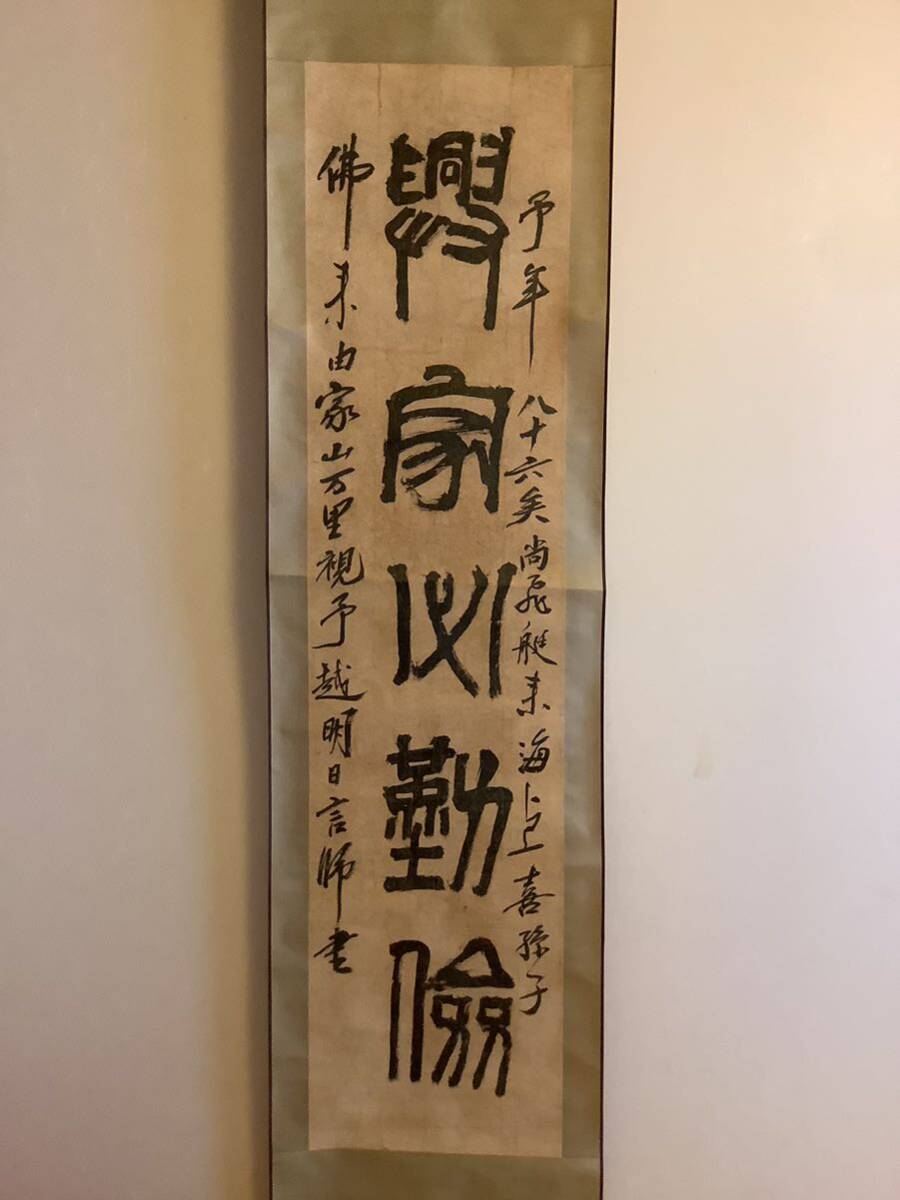 予年八十六矣尚飛艇来海上喜孫子
興家必勤儉
佛来由家山万里視予越明日言歸書